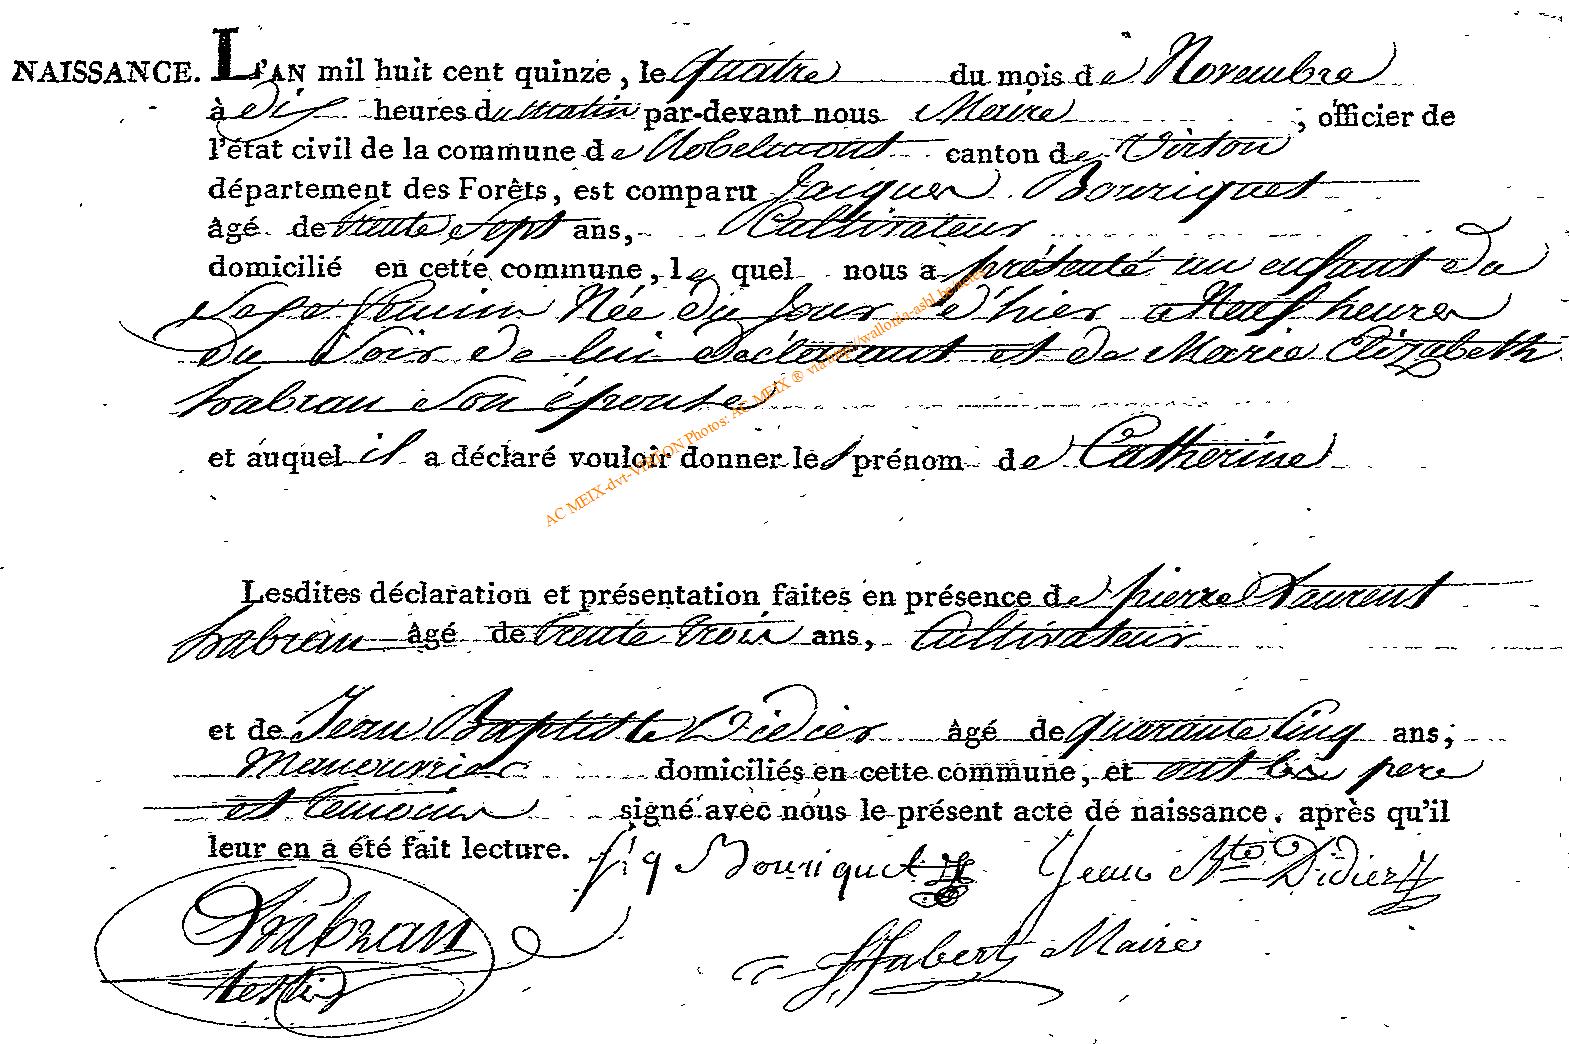 NAISSANCE. L'AN mil huit cent quinze, le quatre du mois de Novembre
à dix heures du matin par-devant nous Maire ; officier de
l'état civil de la commune de Robelmont canton de Virton
département des Forêts, est comparu Jacques Bouriquet
âgé de trente Sept ans, Cultivateur
domicilié en cette commune, le quel nous a présenté un enfant du
Sexe féminin Née du Jour d'hier a Neuf heures
du Soir de lui déclarant et de Marie Elizabeth
habran Son épouse
et auquel il a déclaré vouloir donner les prénom de Catherine
Lesdites déclaration et présentation faites en présence de pierre Laurent
habran âgé de trente trois ans, Cultivateur
et de Jean Baptiste Didier âgé de quarante Cinq ans;
Manouvrier domiciliés en cette commune, et ont les pere
et temoins signé avec nous le présent acte de naissance, après qu'il
leur en a été fait lecture. Bouriquet Jean Bte Didier
habran
Habert Maire
AC MEIX-dvt-VIRTON Photos: AC MEIX ® via